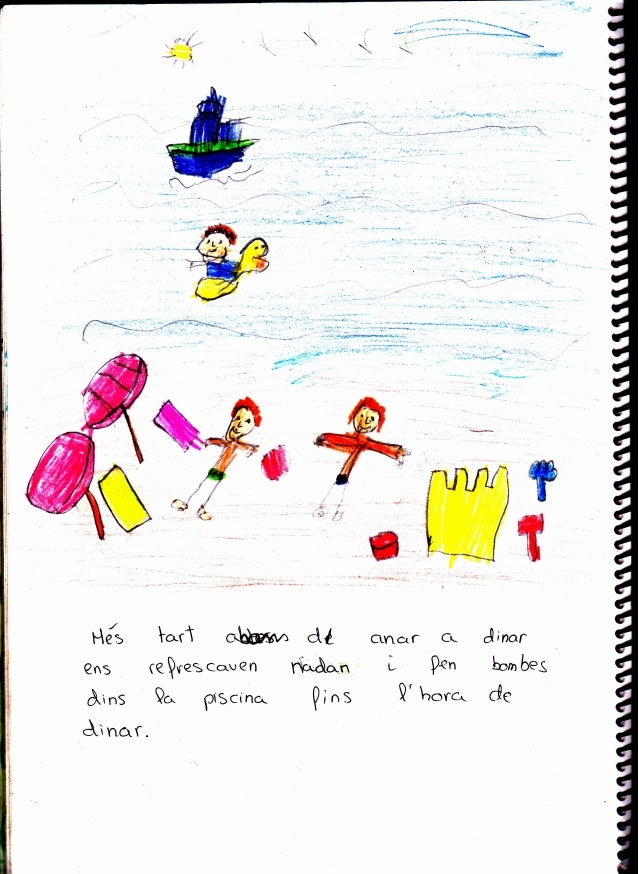 Més tart abans de anar a dinar
ens refrescaven nadan i fen bombes
dins la piscina fins l'hora de
dinar.